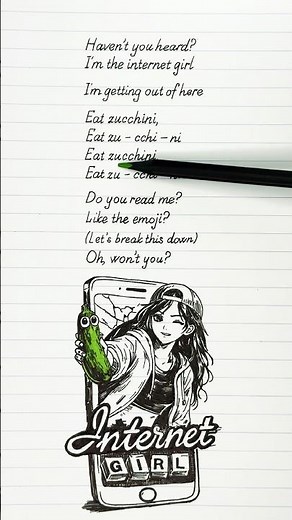 Haven't you heard?
I'm the internet girl
I'm getting out of here
Eat zucchini,
Eat zu – cchi – ni
Eat zucchini
Eat zu – cchi
Do you read me?
Like the emoji?
(Let's break this down)
Oh, won't you?
Internet
GIRL